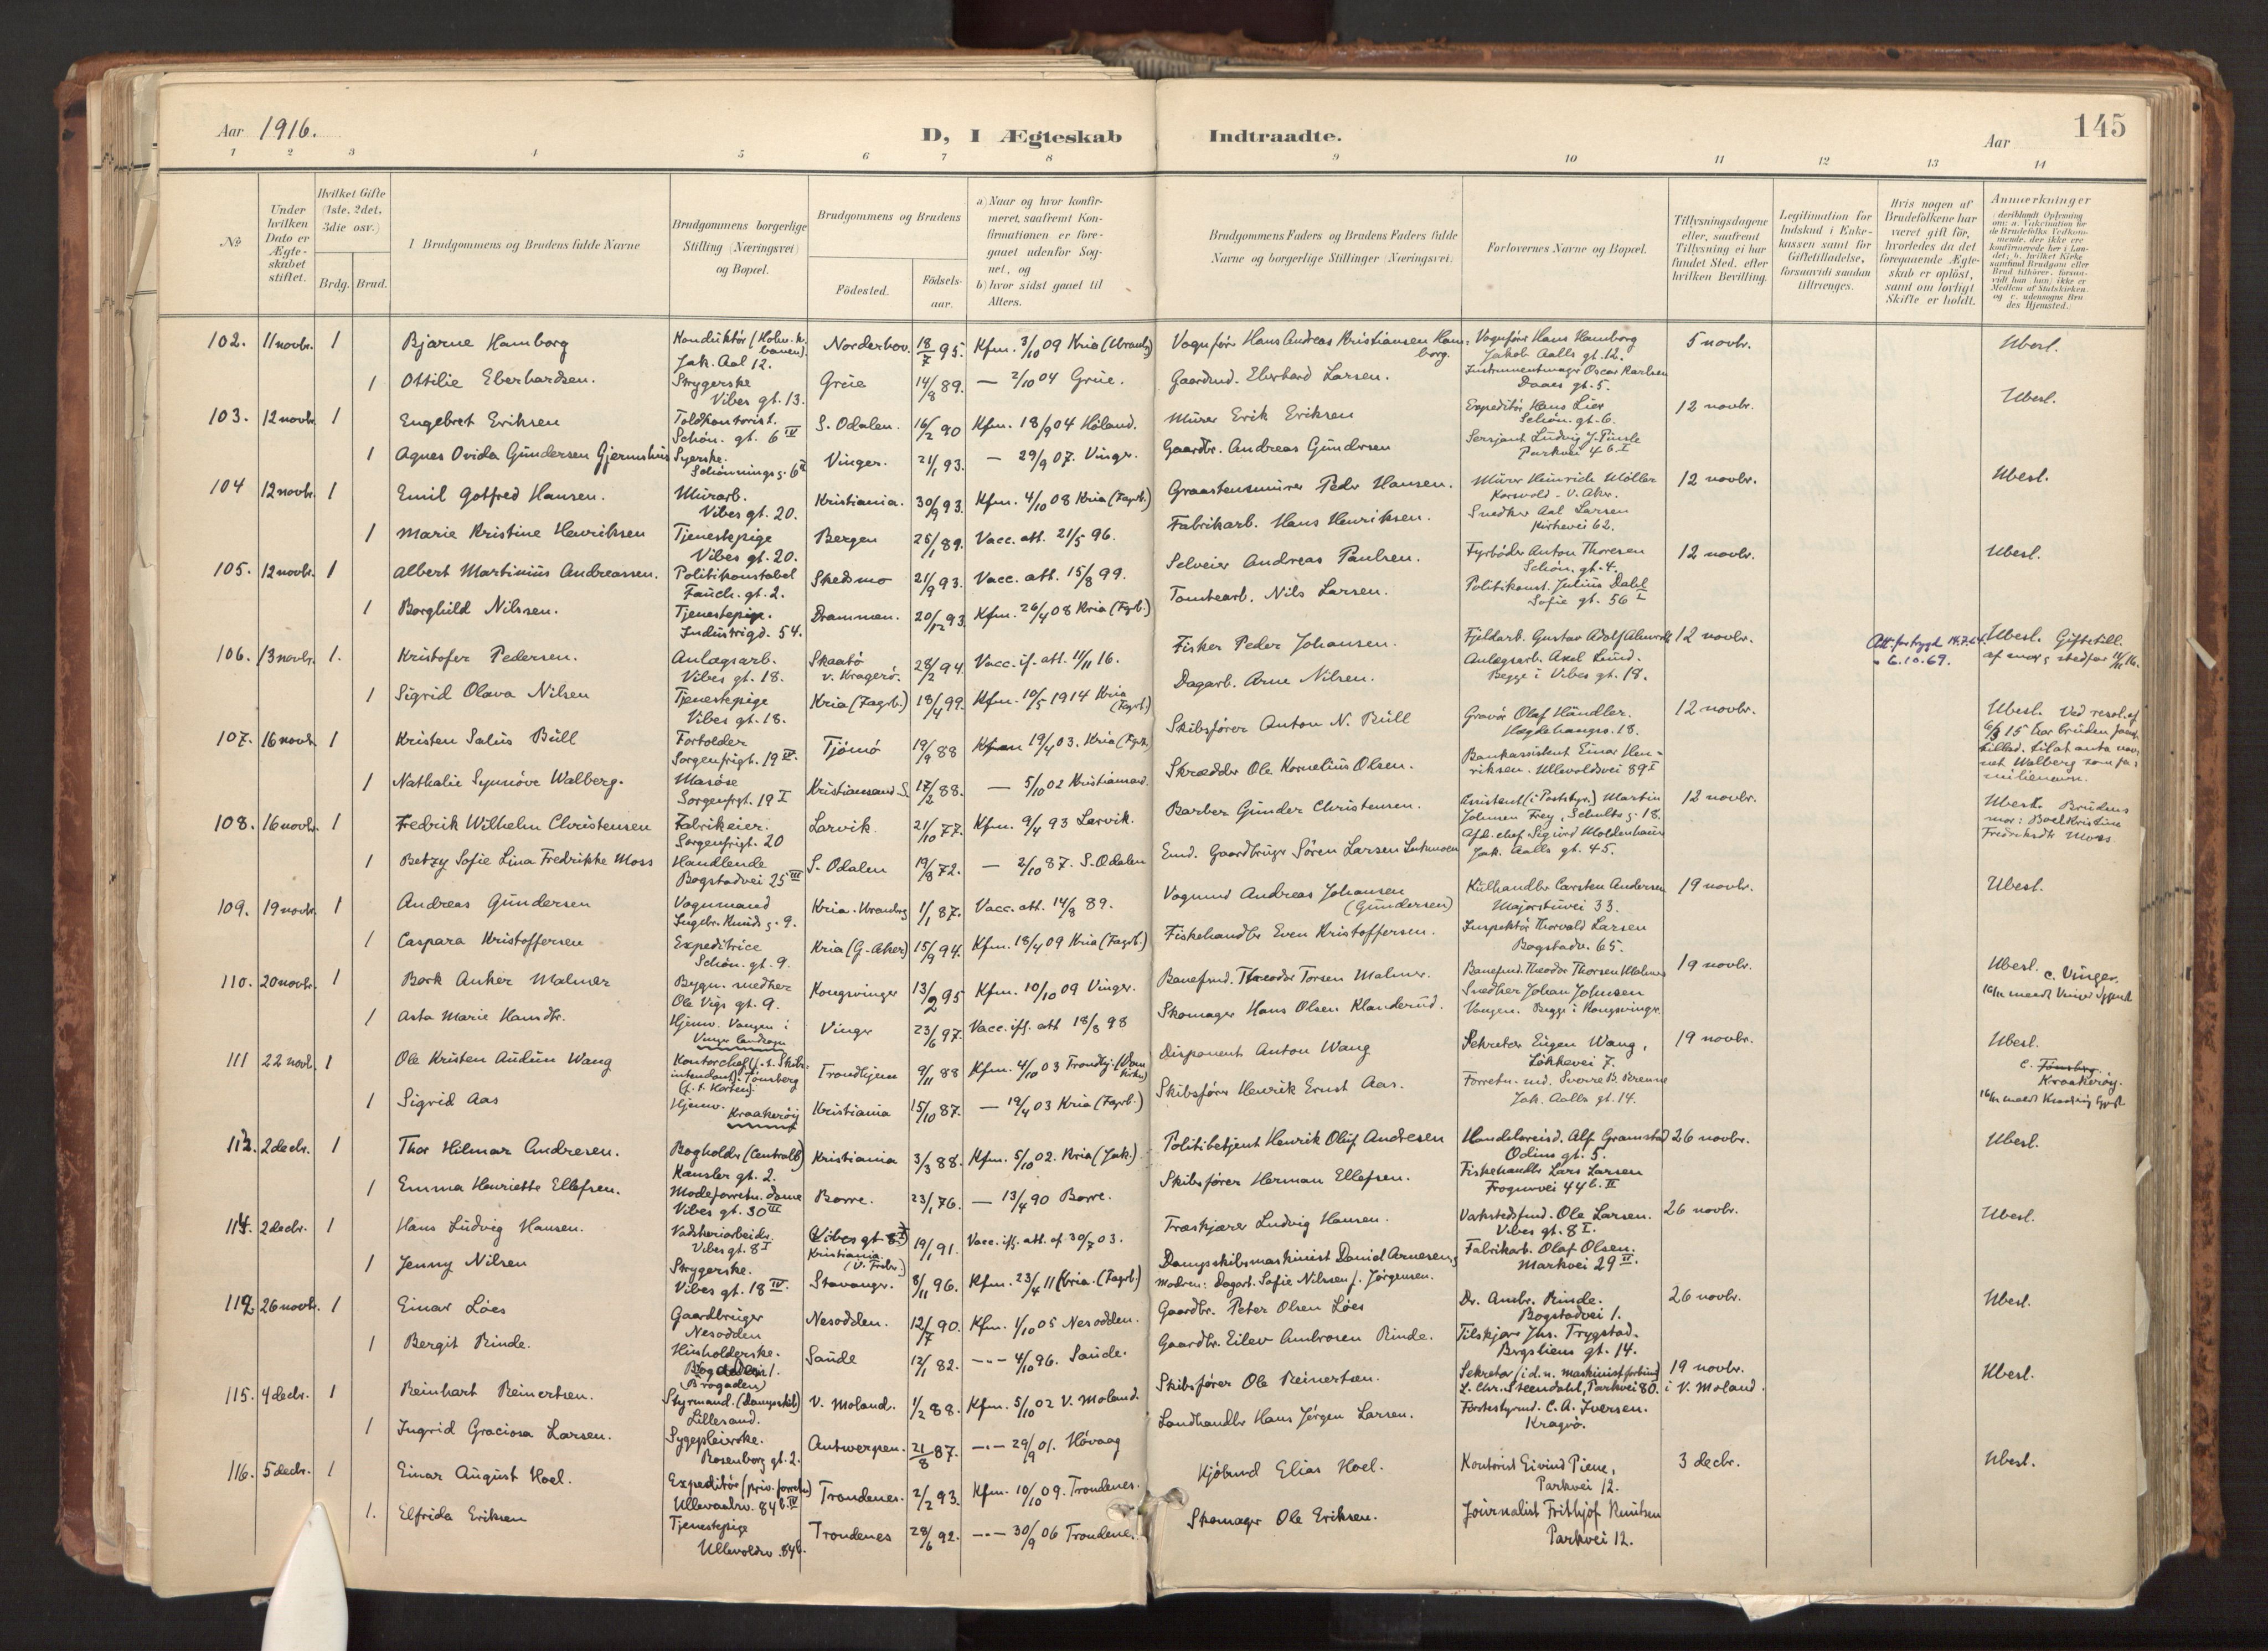 Aar 1916.
D, I Ægteskab Indtraadte.
Aar
145
1 2 3 4 5 6 7 8 9 10 11 12 13 14
№
Under hvilken Dato er Ægteskabet stiftet.
Hvilket Gifte (1ste, 2det, 3die osv.)
Brdg. Brud.
I Brudgommens og Brudens fulde Navne
Brudgommens borgerlige Stilling (Næringsvei) og Bopæl.
Brudgommens og Brudens
Fødested. Fødselsaar.
a) Naar og hvor konfirmeret, saafremt Konfirmationen er foregaaet udenfor Sognet, og
b) hvor sidst gaaet til Alters.
Brudgommens Faders og Brudens Faders fulde Navne og borgerlige Stillinger (Næringsvei)
Forlovernes Navne og Bopæl.
Tillysningsdagene eller, saafremt Tillysning ei har fundet Sted, efter hvilken Bevilling.
Legitimation for Indskud i Enkekassen samt for Giftetilladelse, forsaavidt saadan tiltrænges.
Hvis nogen af Brudefolkene har været gift før, hvorledes da det foregaaende Ægteskab er opløst, samt om lovligt Skifte er holdt.
Anmærkninger
102. 11 novbr. 1 Bjarne Hamborg Konduktør (Holm.k.banen) Jak. Aal 12. Norderhov. 18/7 95. Kfm. 3/10 09 Kria (Uranb.) Vognfører Hans Andreas Kristiansen Hamborg. Vognfører Hans Hamborg Jakob Aalls gt. 12. 5 novbr. Ubesl.
1 Ottilie Eberhardsen. Strygerske Vibes gt. 13. Grue 14/8 89. — 2/10 04 Grue. Gaardmd. Eberhard Larsen. Instrumentmager Oscar Karlsen Daaes gt. 5.
103. 12 novbr. 1 Engebret Eriksen Toldkontorist. Schøn. gt. 6 IV S. Odalen. 16/2 90 Kfm. 18/9 04 Høland. Murer Erik Eriksen Expeditør Hans Lier Schøn. gt. 6. 12 novbr. Ubesl.
1 Agnes Ovida Gundersen Gjermshus Syerske. Schønnings g. 6 Vinger. 21/1 93. — 29/9 07. Vinger. Gaardbr. Andreas Gundersen Sersjant Ludvig J. Parkvei 4
104 12 novbr. 1 Emil Gotfred Hansen. Murarb. Vibes gt. 20. Kristiania. 30/9 93. Kfm. 4/10 08 Kria (Fagrb.) Graastensmurer Peder Hansen. Murer Heinrich Møller Korsvold - V. Aker. 12 novbr. Ubesl.
1 Marie Kristine Henriksen Tjenestepige Vibes gt. 20. Bergen 25/1 89. Vacc. att. 21/5 96. Fabrikarb. Hans Henriksen. Snedker Aal Larsen Kirkevei 62.
105. 12 novbr. 1 Albert Martinius Andreassen. Politikonstabel Fauch. gt. 2. Skedsmo 21/9 93. Vacc. att. 15/8 99. Selveier Andreas Paulsen. Fyrbøder Anton Thoresen Schøn. gt. 4. 12 novbr. Ubesl.
1 Borghild Nilssen. Tjenestepige. Industrigd. 54. Drammen. 20/12 93. Kfm. 26/4 08 Kria (Fgrb.) Tomtearb. Nils Larsen. Politikonst. Julius Dahl Sofie gt. 56 I
106. 13 novbr. 1. Kristofer Pedersen. Anlægsarb. Vibes gt. 18. Skaatø v. Kragerø. 28/2 94. Vacc. if. att. 11/11 16. Fisker Peder Johansen. Fjeldarb. Gustav Adolf 12 novbr. 6.10.69. Ubesl. Giftetill. af mor & stedfar 11/11 16.
1 Sigrid Olava Nilsen Tjenestepige Vibes gt. 18. Kria (Fagrb.) 18/4 99. Kfm. 10/5 1914 Kria (Fagrb.) Dagarb. Arne Nilsen. Anlægsarb. Axel Lund. Begge i Vibes gt. 18.
107. 16 novbr. 1 Kristen Salus Bull Forvolder Sorgenfrigt. 19 IV. Tjømø 19/9 88 Kfm 19/4 03. Kria (Fgrb.) Skibsfører Anton N. Bull Gravør Olaf Händler. Hægdehaugsv. 18. 12 novbr. Ubesl. Ved resol. af 6/3 15 har bruden faaet tillad. til at anta navnet Walberg som familienavn.
1 Nathalie Synnöve Walberg. Masøse Sorgenfrgt. 19 I Kristiansand S. 17/2 88. — 5/10 02 Kristiansand. Skrædder Ole Kornelius Olsen. Bankassistent Einar Henriksen. Ullevoldsvei 89 I
108. 16 novbr. 1 Fredrik Wilhelm Christensen Fabrikeier. Sorgenfrigt. 20 Larvik. 21/10 77. Kfm. 9/4 93 Larvik. Barber Gunder Christensen. Assistent (i Poststyr.) Martin Johnsen Frey, Schults g. 18. 12 novbr. Ubesl. Brudens mor: Boel Kristine Fredriksdtr Moss
1 Betzy Sofie Lina Fredrikke Moss Handlende Bogstadvei 25 III S. Odalen 19/8 72. — 2/10 87. S. Odalen Emd. Gaardbruger Søren Larsen Afd. chef Sigurd Moldenhauer Jak. Aalls gt. 45.
109. 19 novbr. 1 Andreas Gundersen Vognmand Ingebr. Knuds g. 9. Kria. Uranbrg 1/1 87. Vacc. att. 14/8 89. Vognmd Andreas Johansen (Gundersen) Kulhandler Carsten Andersen Majorstuvei 33. 19 novbr. Ubesl.
1 Caspara Kristoffersen Expeditrice Schøn. gt. 9. Kria (G. Aker) 15/9 94. Kfm. 18/4 09 Kria (Fagrb.) Fiskehandler Even Kristoffersen. Inspektør Thorvald Larsen Bogstadv. 65.
110. 20 novbr. 1 Bark Anker Malmer Bygn. snedker Ole Vigs gt. 9. Kongsvinger 13/2 95 Kfm. 10/10 09 Vinger. Banefmd. Theodor Torsen Malmer. Banefmd. Theodor Thorsen Malmer 19 novbr. Ubesl. c. Vinger.
1 Asta Marie Hansdtr. Hjemv. Vangen i Vinger landsogn Vinger 23/6 97. Vacc. iff. att 18/8 98 Skomager Hans Olsen Klanderud. Snedker Johan Johnsen Vangen. Begge i Kongsvinger.
111 22 novbr. 1 Ole Kristen Audun Wang Kontorchef (f. t. Skibsintendant) i Tønsberg (f. t. Horten) Trondhjem 9/11 88 Kfm. 4/10 03 Trondhj. (Domkirken) Disponent Anton Wang Sekretær Eugen Wang, Løkkevei 7. 19 novbr. Ubesl. c. Tønsberg. Kraakerøy.
1 Sigrid Aas Hjemv. Kraakerøy Kristiania 15/10 87. — 19/4 03 Kria (Fagrb.) Skibsfører Henrik Ernst Aas. Forretn. md. Sverre B. Jak. Aalls gt. 14.
113. 2 decbr. 1 Thor Hilmar Andresen. Bogholder (Centralb) Kansler gt. 2. Kristiania 3/3 88. Kfm. 5/10 02. Kria (Jak.) Politibetjent Henrik Oluf Andresen Handelsreisd. Alf Gramstad Odins gt. 5. 26 novbr. Ubesl.
1 Emma Henriette Ellefsen. Modeforretn. dame Vibes gt. 30 III Borre. 23/1 76. — 13/4 90 Borre. Skibsfører Herman Ellefsen. Fiskehandler Lars Larsen Frognervei 44 b. II
114. 2 decbr. 1 Hans Ludvig Hansen. Vadskeriarbeider. Vibes gt. 8 I Vibes gt. 8 I Kristiania (V. Frebr.) 19/1 91. Vacc. iff. att. af 30/7 03. Træskjærer Ludvig Hansen. Verkstedsfmd. Ole Larsen. Vibes gt. 8 I. 26 novbr. Ubesl.
1 Jenny Nilsen Strygerske. Vibes gt. 18 IV. Stavanger. 8/11 96. Kfm. 23/4 11 (Kria. (Fagrb.) Dampskibsmaskinist Daniel Arnesen, Modren: Dagarb. Sofie Nilssen f. Jørgensen. Fabrikarb. Olaf Olsen. Markvei 29 II.
112 26 novbr. 1 Einar Löes Gaardbruger Nesodden Nesodden. 12/7 90. Kfm. 1/10 05 Nesodden. Gaardbr. Peter Olsen Löes Dr. Ambr. Rinde. Bogstadvei 1. 26 novbr. Ubesl.
1 Bergit Rinde. Husholderske. Bogstadvei 1. Saude 12/1 82. —"— 4/10 96. Saude. Gaardbr. Eilev Ambrosen Rinde. Tilskjærer Jhs. Trygstad. Bergsliens gt. 14.
115. 4 decbr. 1 Reinhart Reinertsen. Styrmand. (dampskib) Lillesand. V. Moland. 1/2 88. Kfm. 5/10 02 V. Moland. Skibsfører Ole Reinertsen. Sekretær (i d. n. maskinistforbund) L. Chr. Steendahl, Parkvei 80. 19 novbr. i V. Moland. Ubesl.
1 Ingrid Graciosa Larsen. Sygepleierske. Rosenborg gt. 2. Antwerpen. 21/8 87. —"— 29/9 01. Høvaag Landhandler Hans Jørgen Larsen. Førstestyrmd. C. A. Iversen. Kragerø.
116. 5 decbr. 1 Einar August Hoel. Expeditør (priv. forretn) Ullevaalsv. 84 b. IV Trondenes. 2/2 93. Kfm. 10/10 09. Trondenes. Kjøbmd Elias Hoel. Kontorist Eivind Piene, Parkvei 12. 3 decbr. Ubesl.
1. Elfrida Eriksen Tjenestepige Ullevoldsv. 84 b. Trondenes 28/6 92. —"— 30/9 06 Trondenes. Skomager Ole Eriksen. Journalist Frithjof Knutsen Parkvei 12.